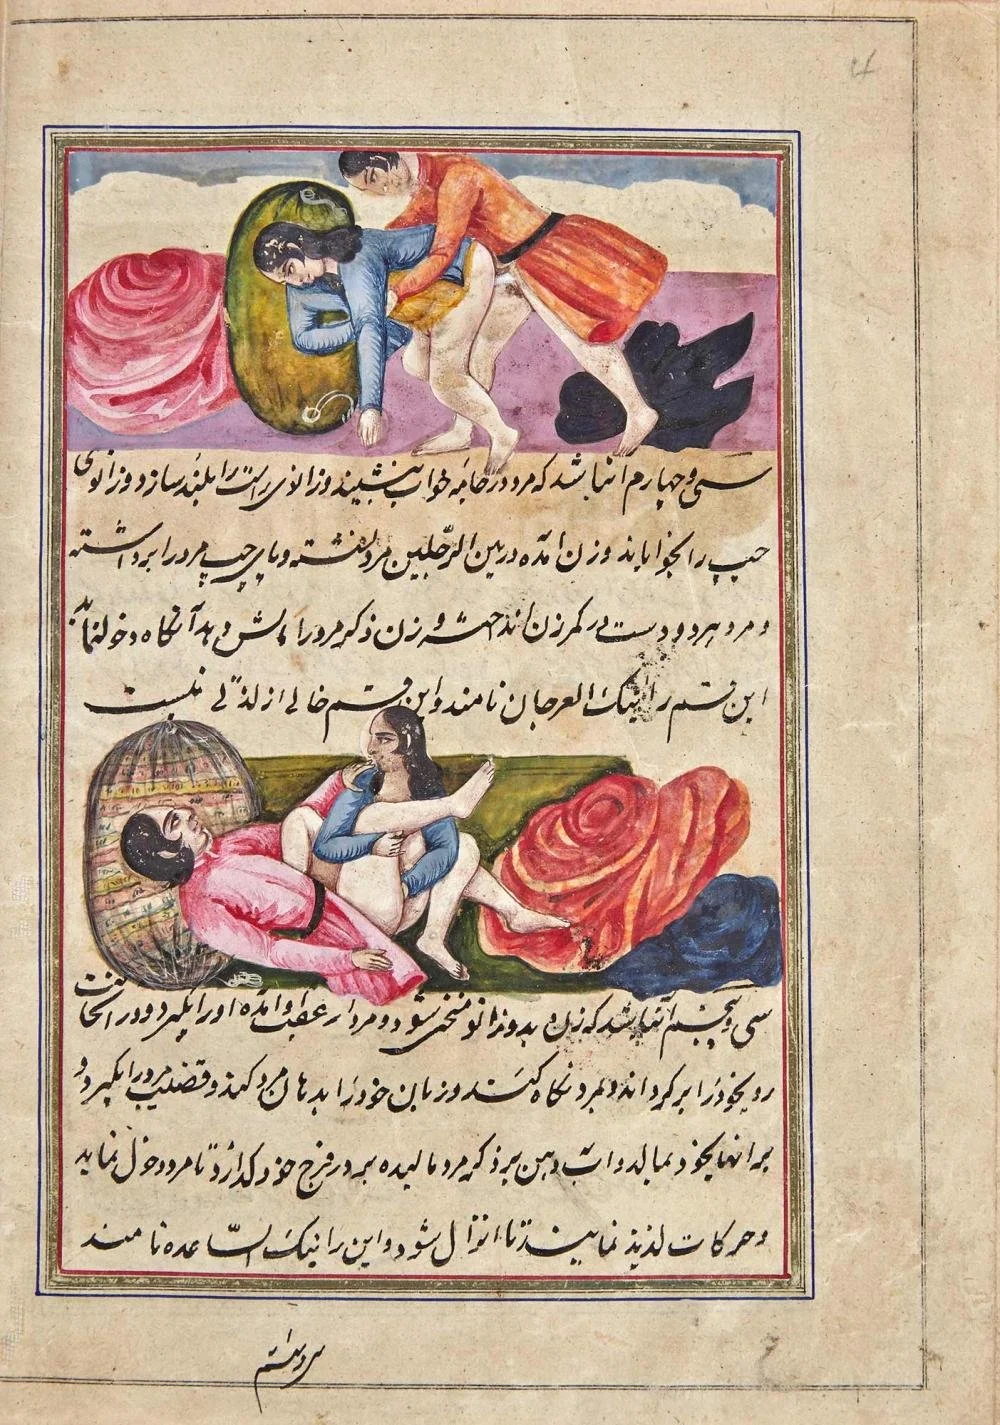 سی و چهارم آنباشد که مرد در جامهٔ خواب بنشیند و زانوی راست را بلند سازد و زانوی
چپ را بخواباند و زن آمده در بین الرّجلین مرد نشسته و پای چپ مرد را برداشته
و مرد هر دو دست در کمر زن انداخته و زن ذکر مرد را مالش دهد آنگاه دخول نماید
این قسم را نیک العرجان نامند و این قسم خالی از لذّتی نیست
سی و پنجم آنباشد که زن بدو زانو منحنی شود و مرد از عقب او آمده او را بگیرد و در آنحالت
رو بخود را برگرداند و بمرد نگاه کند و زبان خود را بدهان مرد کند و قضیب مرد را بگیرد و
بمالد و آب دهن بر ذکر مرد مالیده بر در فرج خود گذارد تا مرد دخول نماید
و حرکات لذیذ نمایند تا انزال شود و این را نیک السّاعده نامند